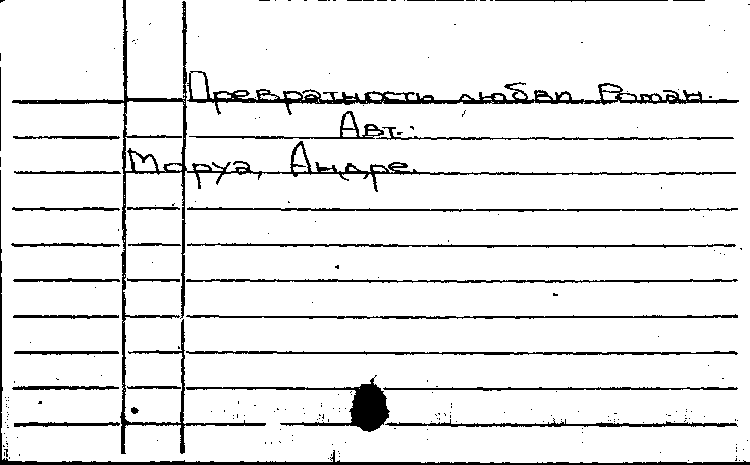 Превратности любви. Роман.
Авт.:
Моруа, Андре.